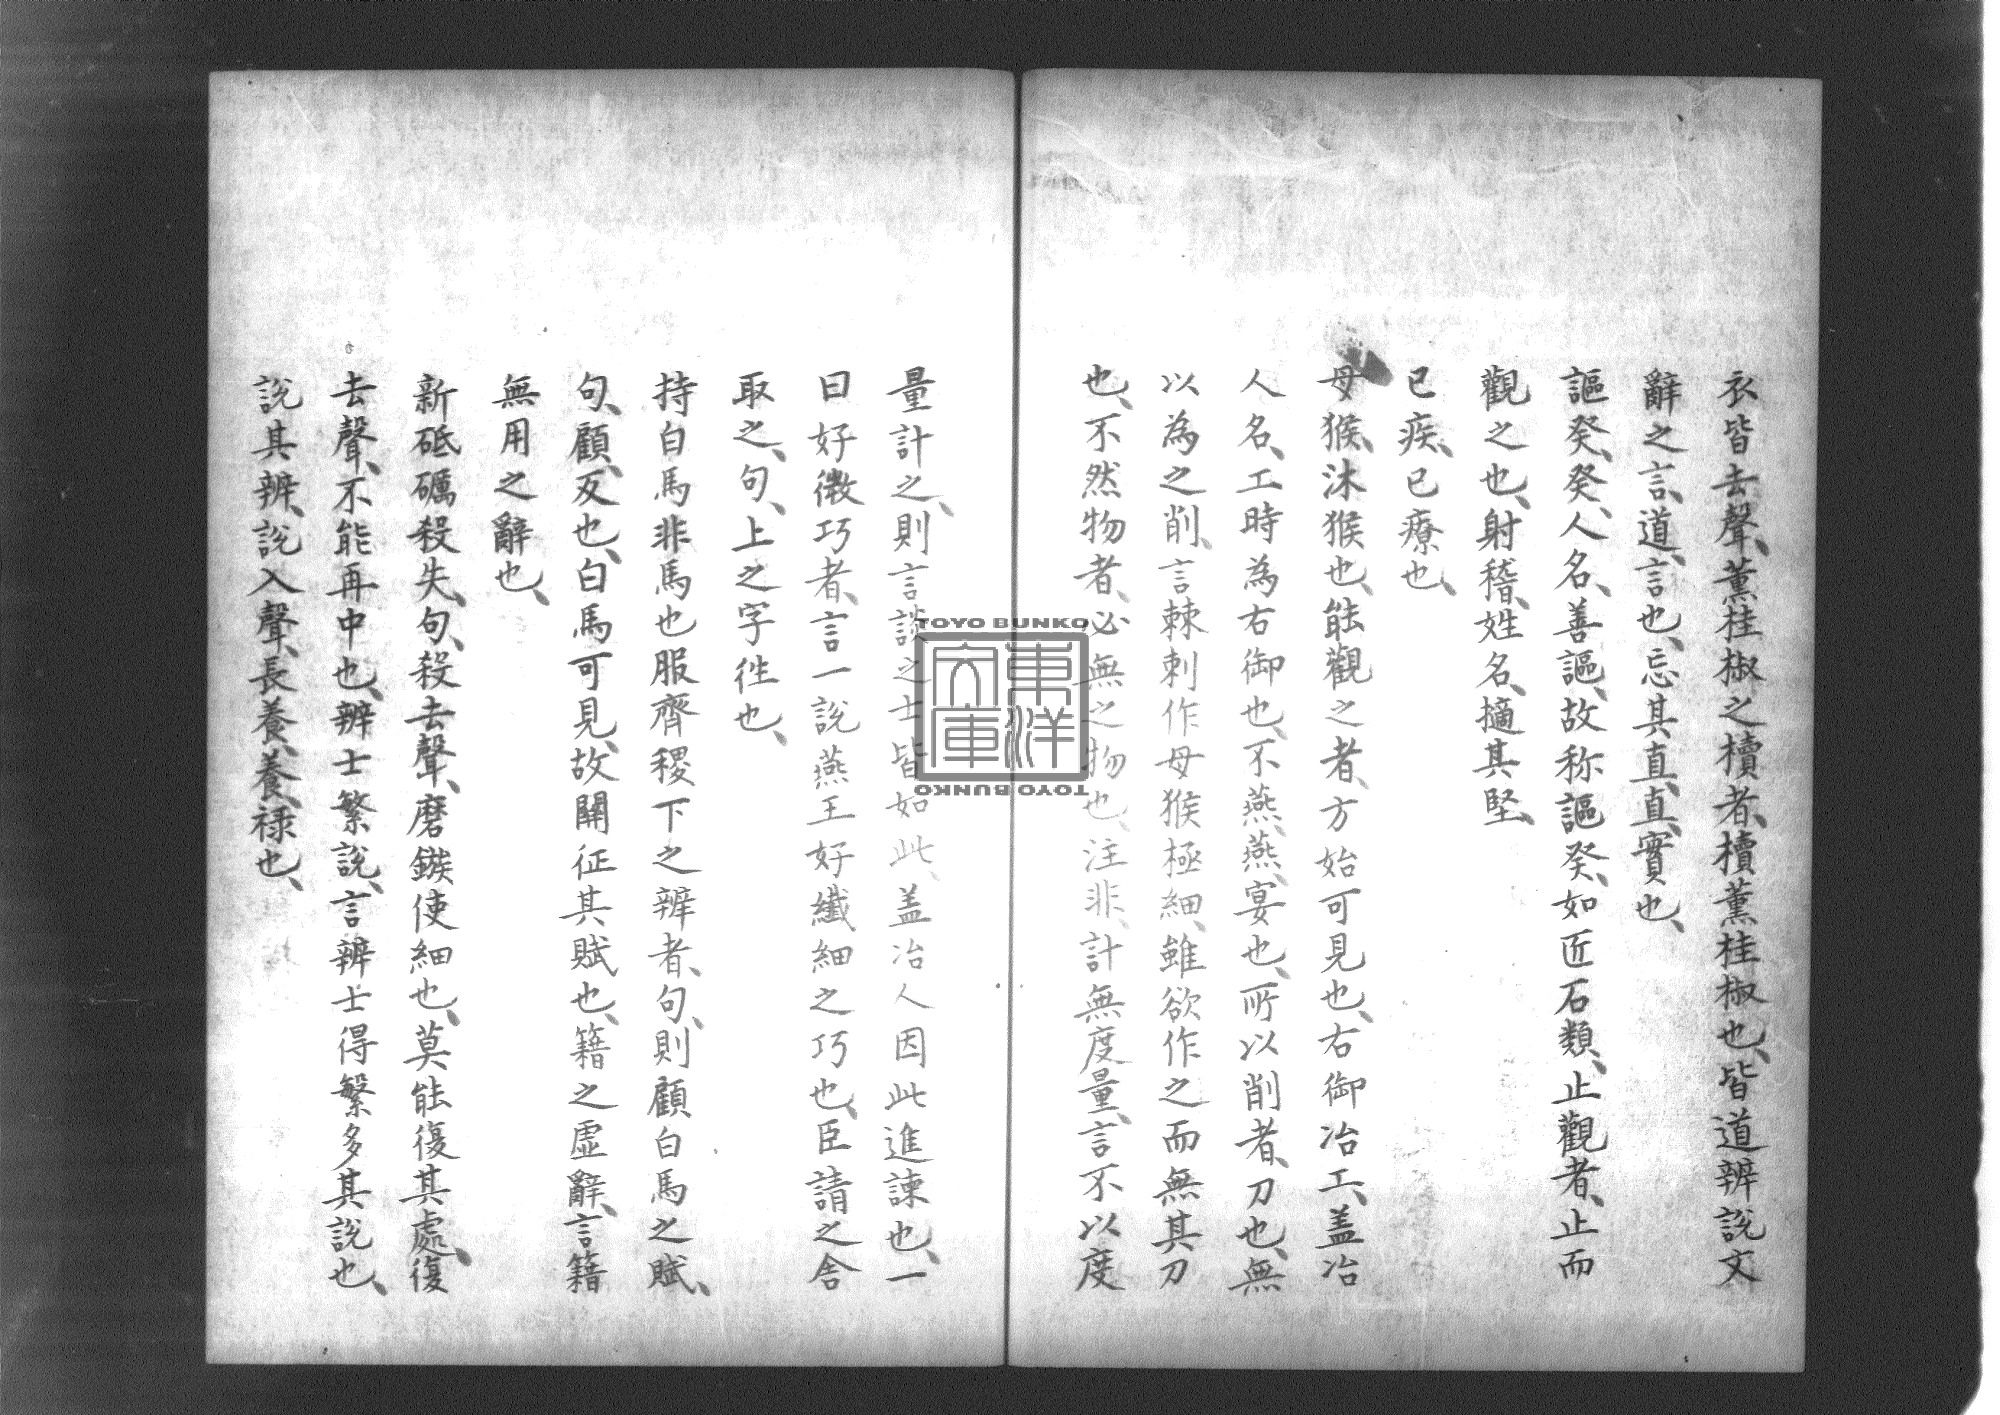 衣皆去聲、薫桂椒之櫝者、櫝薫桂椒也、皆道辨說文
辭之言、道、言也、忘其直、直、實也、
謳癸、癸、人名、善謳、故称謳癸、如匠石類、止觀者、止而
觀之也、射稽、姓名、擿其堅、
已疾、已療也、
母猴、沐猴也、能觀之者、方始可見也、右御冶工、盖冶
人名、工時為右御也、不燕、燕、宴也、所以削者、刀也、無
以為之削、言棘刺作母猴極細、雖欲作之而無其刀
也、不然物者、必無之物也、注非、計無度量、言不以度
量計之、則言談之士皆如此、盖冶人因此進諫也、一
曰好微巧者、言一說燕王好纖細之巧也、臣請之舍
取之、句、上之字徃也、
持白馬非馬也服齊稷下之辨者、句、則顧白馬之賦、
句、顧、反也、白馬可見、故關征其賦也、籍之虛辭、言籍
無用之辭也、
新砥礪殺矢、句、殺去聲、磨鏃使細也、莫能復其處、復
去聲、不能再中也、辨士繁說、言辨士得繁多其說也、
說其辨、說入聲、長養、養、祿也、
TOYO BUNKO
東洋文庫
TOYO BUNKO